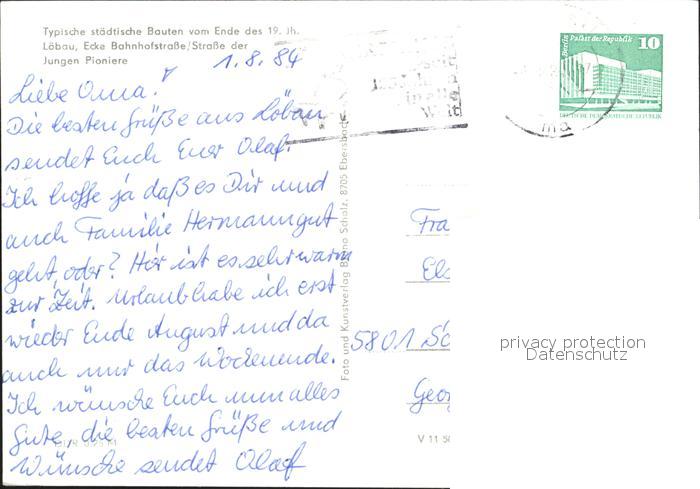 Typische städtische Bauten vom Ende des 19. Jh.
Löbau, Ecke Bahnhofstraße/Straße der
Jungen Pioniere
1.8.84
Liebe Oma!
Die besten Grüße aus Löbau
sendet Euch Euer Olaf.
Ich hoffe ja daß es Dir und
auch Familie Hermann gut
geht, oder? Hier ist es sehr warm
zur Zeit. Urlaub habe ich erst
wieder Ende August und da
auch nur das Wochenende.
Ich wünsche Euch nun alles
Gute, die besten Grüße und
Wünsche sendet Olaf
Foto und Kunstverlag Bruno Scholz, 8705 Ebersbac
V 11 50
Berlin Palast der Republik
10
DEUTSCHE DEMOKRATISCHE REPUBLIK
Fra
Els
5801 Sc
Geor
privacy protection
Datenschutz